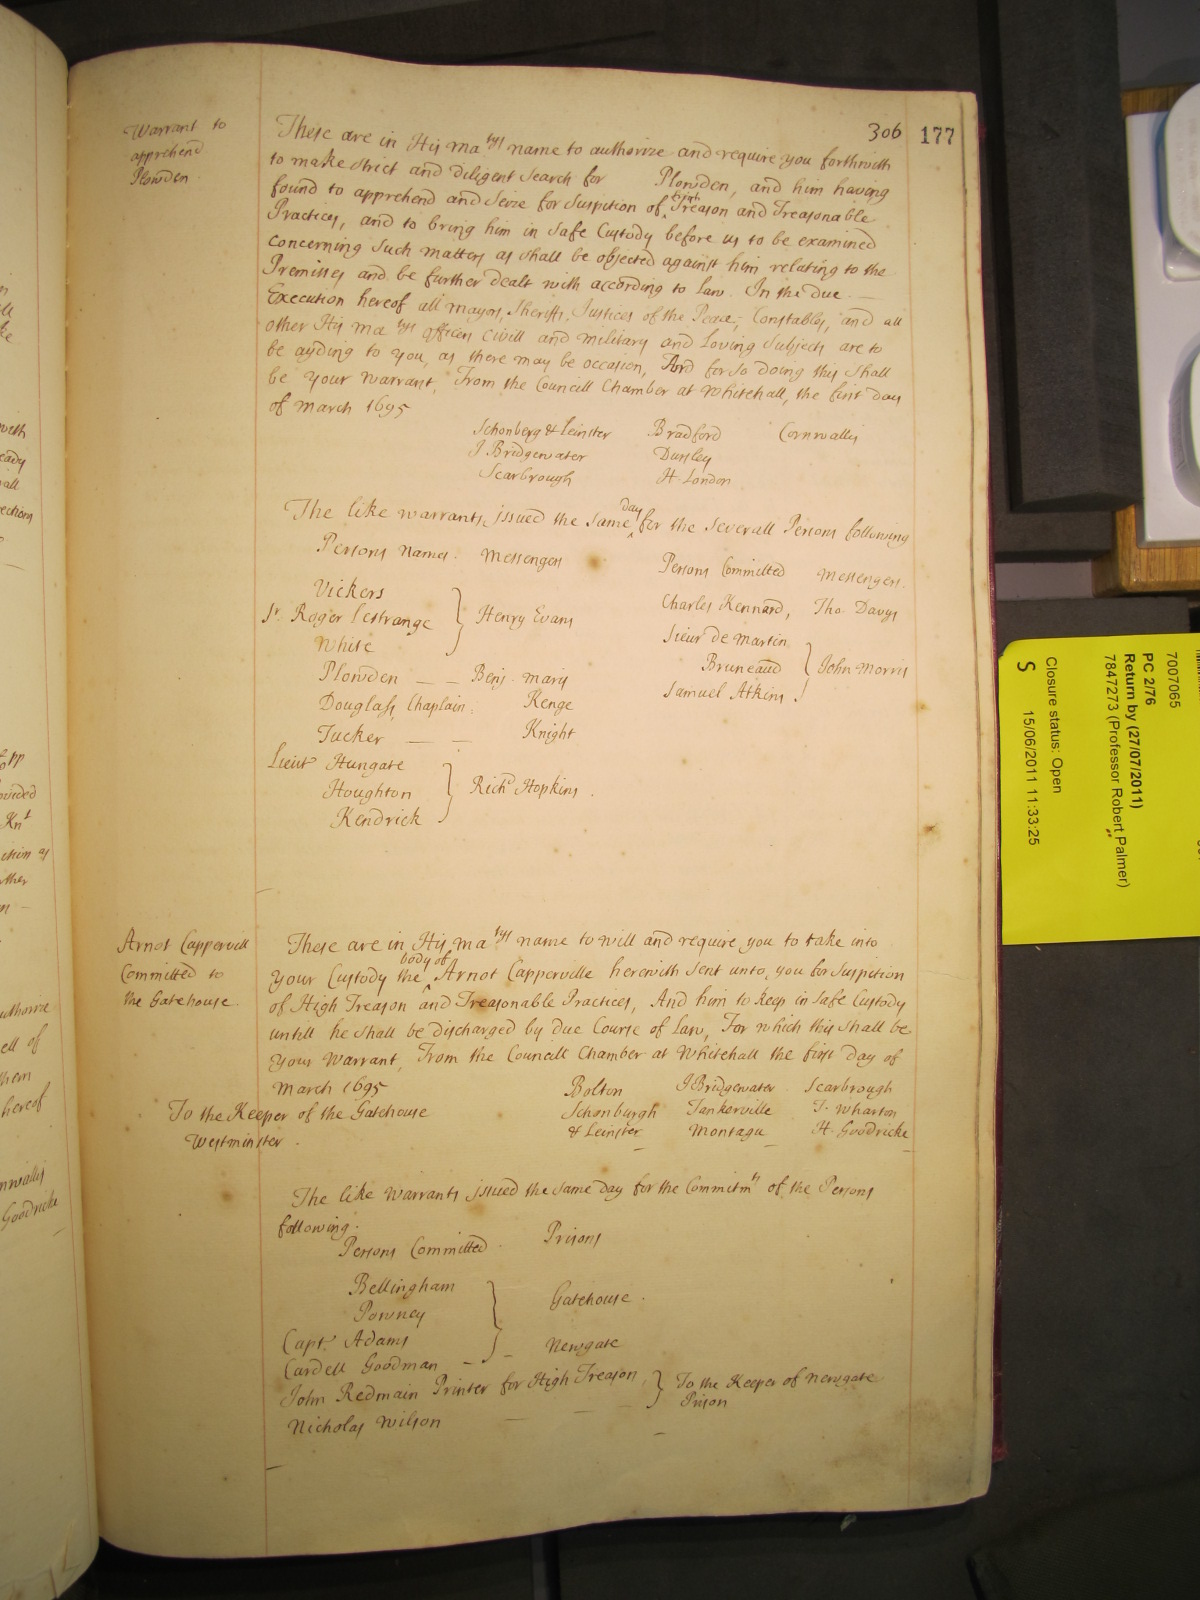 306 177
Warrant to
apprehend
Plowden
These are in His Ma tys name to authorize and require you forthwith
to make strict and diligent search for Plowden, and him having
found to apprehend and Seize for Suspition of ^high Treason and Treasonable
Practices, and to bring him in Safe Custody before us to be examined
concerning Such matters as shall be objected against him relating to the
Premisses and be further dealt with according to Law. In the due
Execution hereof all mayors, Sheriffs, Justices of the Peace, Constables, and all
other His Ma tys Officers Civill and military and Loving Subjects are to
be ayding to you, as there may be occasion, And for so doing this Shall
be your warrant, From the Councill Chamber at Whitehall, the first day
of March 1695
Schonberg & Leinster Bradford Cornwallis
J Bridgewater Dursley
Scarbrough H. London
The like warrants issued the same ^day for the Severall Persons following
Persons Names. Messengers
Vickers
Sr. Roger Lestrange } Henry Evans
White
Plowden — — Benj. Marys
Douglass, Chaplain. Kenge
Tucker — — Knight
Lieut Hungate
Houghton } Richd Hopkins.
Kendrick
Persons Committed Messengers.
Charles Kennard, Tho Davys
Sieur de Martin
Bruneaud } John Morris
Samuel Atkins
Arnot Cappervill
Committed to
the Gatehouse.
These are in His Ma tys name to will and require you to take into
your Custody the ^body of Arnot Capperville herewith Sent unto you for Suspition
of High Treason and Treasonable Practices, And him to keep in Safe Custody
untill he shall be discharged by due Course of Law, For which this shall be
your Warrant, From the Councill Chamber at Whitehall the first day of
March 1695
Bolton J Bridgewater Scarbrough
Schonburgh Tankerville T. Wharton
& Leinster Montagu H. Goodricke
To the Keeper of the Gatehouse
Westminster.
The like Warrants issued the same day for the Commitmts of the Persons
following.
Persons Committed Prisons
Bellingham
Powney } Gatehouse.
Capt. Adams
Cardell Goodman — — Newgate
John Redmain Printer for High Treason } To the Keeper of Newgate
Nicholas Wilson — — — Prison
with
eady
all
ections
ovided
Knt
ction as
rther
uthorize
ell of
them
hereof
nwallis
Goodricke
7007065
PC 2/76
Return by (27/07/2011)
7847273 (Professor Robert Palmer)
Closure status: Open
S 15/06/2011 11:33:25